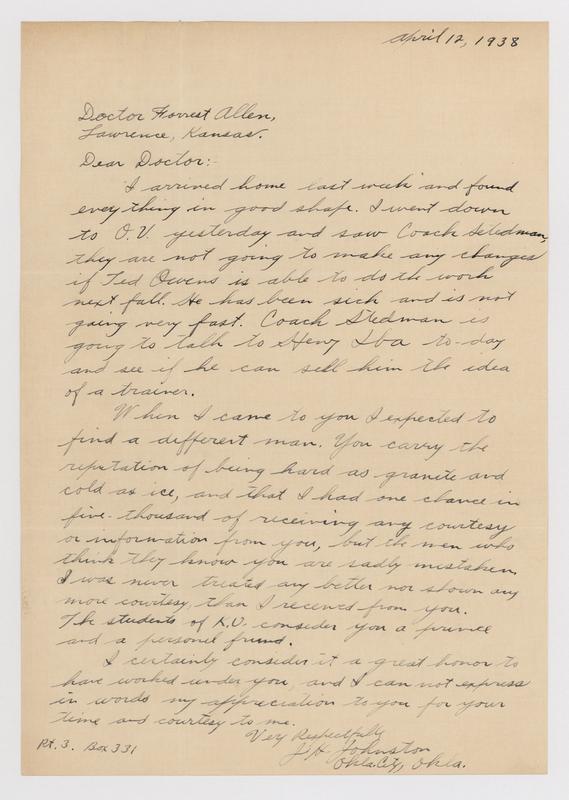 April 12, 1938
Doctor Forrest Allen,
Lawrence, Kansas.
Dear Doctor:-
I arrived home last week and found
everything in good shape. I went down
to O.U. yesterday and saw Coach Stedman,
they are not going to make any changes
if Ted Owens is able to do the work
next fall. He has been sick and is not
going very fast. Coach Stedman is
going to talk to Henry Iba to-day
and see if he can sell him the idea
of a trainer.
When I came to you I expected to
find a different man. You carry the
reputation of being hard as granite and
cold as ice, and that I had one chance in
five-thousand of receiving any courtesy
or information from you, but the men who
think they know you are sadly mistaken.
I was never treated any better nor shown any
more courtesy, than I received from you.
The students of K.U. consider you a prince
and a personal friend.
I certainly consider it a great honor to
have worked under you, and I can not express
in words my appreciation to you for your
time and courtesy to me.
Very Respectfully
J.H. Johnston
Okla. City, Okla.
Rt. 3. Box 331